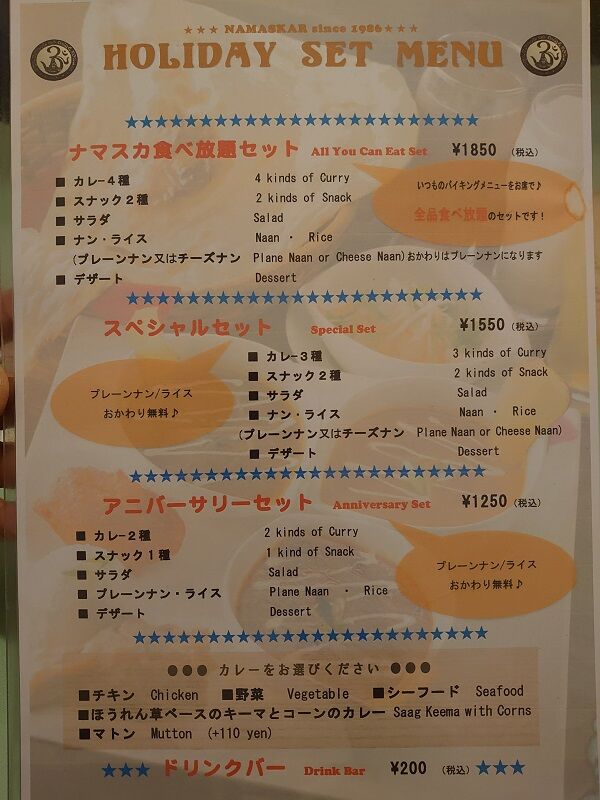 ★★★ NAMASKAR since 1986 ★★★
HOLIDAY SET MENU
ナマスカ食べ放題セット All You Can Eat Set ¥1850 (税込)
■ カレー4種 4 kinds of Curry
■ スナック2種 2 kinds of Snack
■ サラダ Salad
■ ナン・ライス Naan ・ Rice
(プレーンナン又はチーズナン Plane Naan or Cheese Naan)おかわりはプレーンナンになります
■ デザート Dessert
いつものバイキングメニューをお席で♪
全品食べ放題のセットです！
スペシャルセット Special Set ¥1550 (税込)
■ カレー3種 3 kinds of Curry
■ スナック2種 2 kinds of Snack
■ サラダ Salad
■ ナン・ライス Naan ・ Rice
(プレーンナン又はチーズナン Plane Naan or Cheese Naan)
■ デザート Dessert
プレーンナン/ライス
おかわり無料♪
アニバーサリーセット Anniversary Set ¥1250 (税込)
■ カレー2種 2 kinds of Curry
■ スナック1種 1 kind of Snack
■ サラダ Salad
■ プレーンナン・ライス Plane Naan ・ Rice
■ デザート Dessert
プレーンナン/ライス
おかわり無料♪
●●● カレーをお選びください ●●●
■チキン Chicken ■野菜 Vegetable ■シーフード Seafood
■ほうれん草ベースのキーマとコーンのカレー Saag Keema with Corns
■マトン Mutton (+110 yen)
★★★ ドリンクバー Drink Bar ¥200 (税込) ★★★